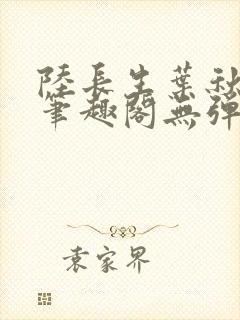 陸長生葉秋
筆趣閣無彈
袁家界